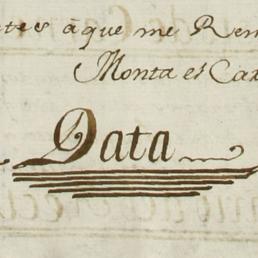 ntes àque me Rem
Monta el Car
Data